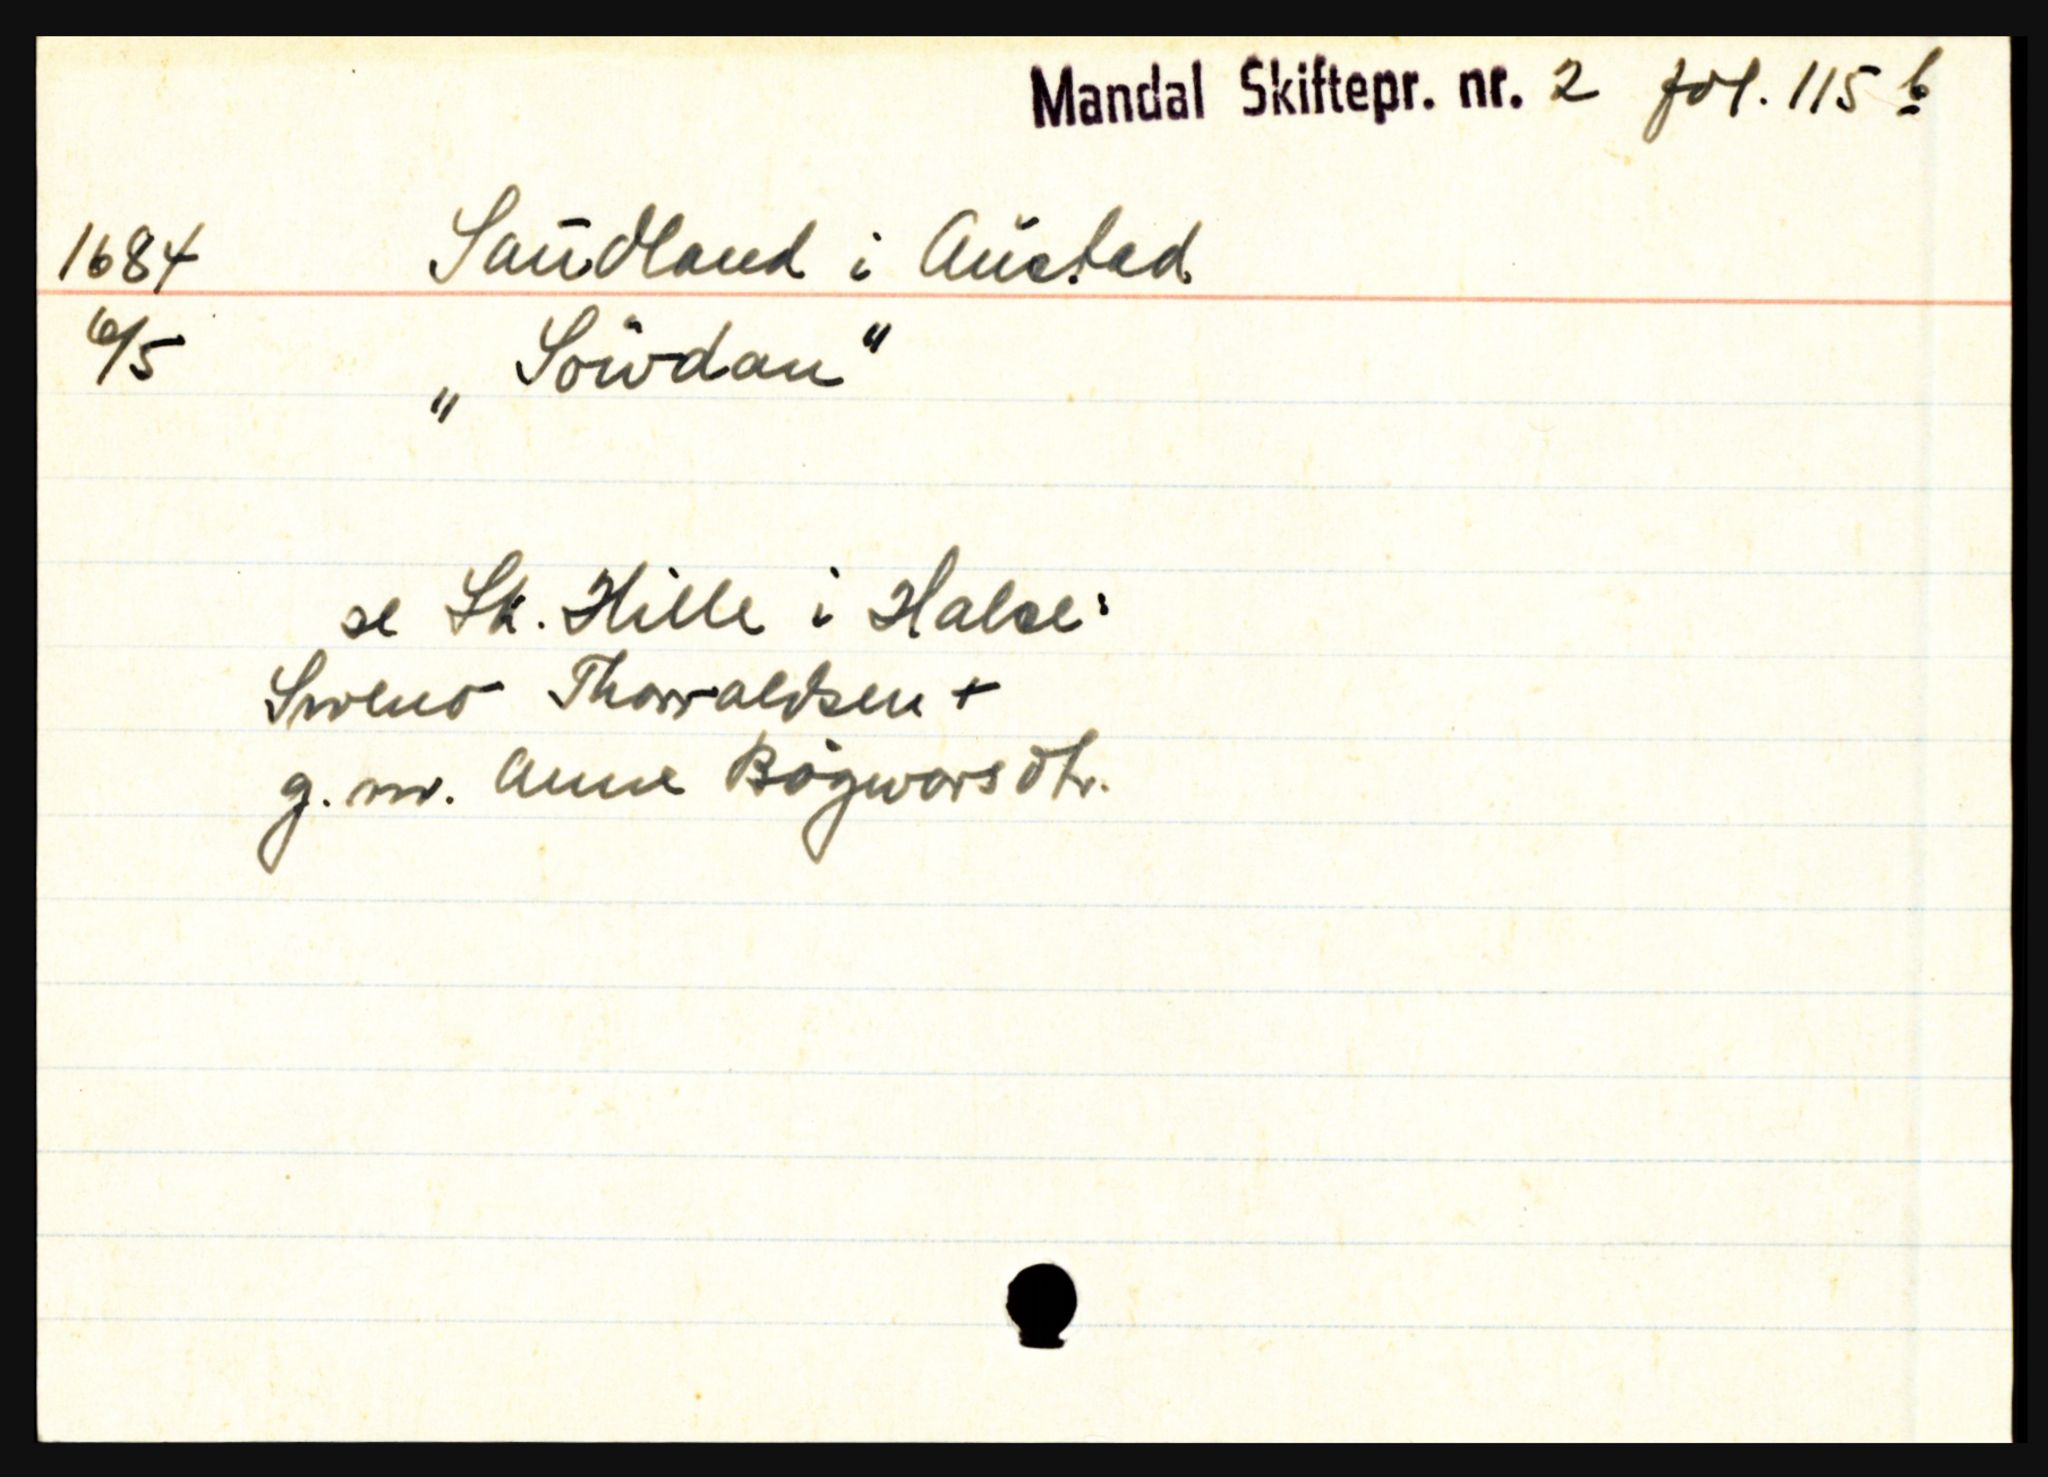 Mandal Skiftepr. nr. 2 fol. 115 b
1684 Saudland i Austad
6/5 „Sowdan"
se Sk. Hille i Halse:
Sweno Thorvaldsen +
g.m. Anne Bøgwarsdtr.